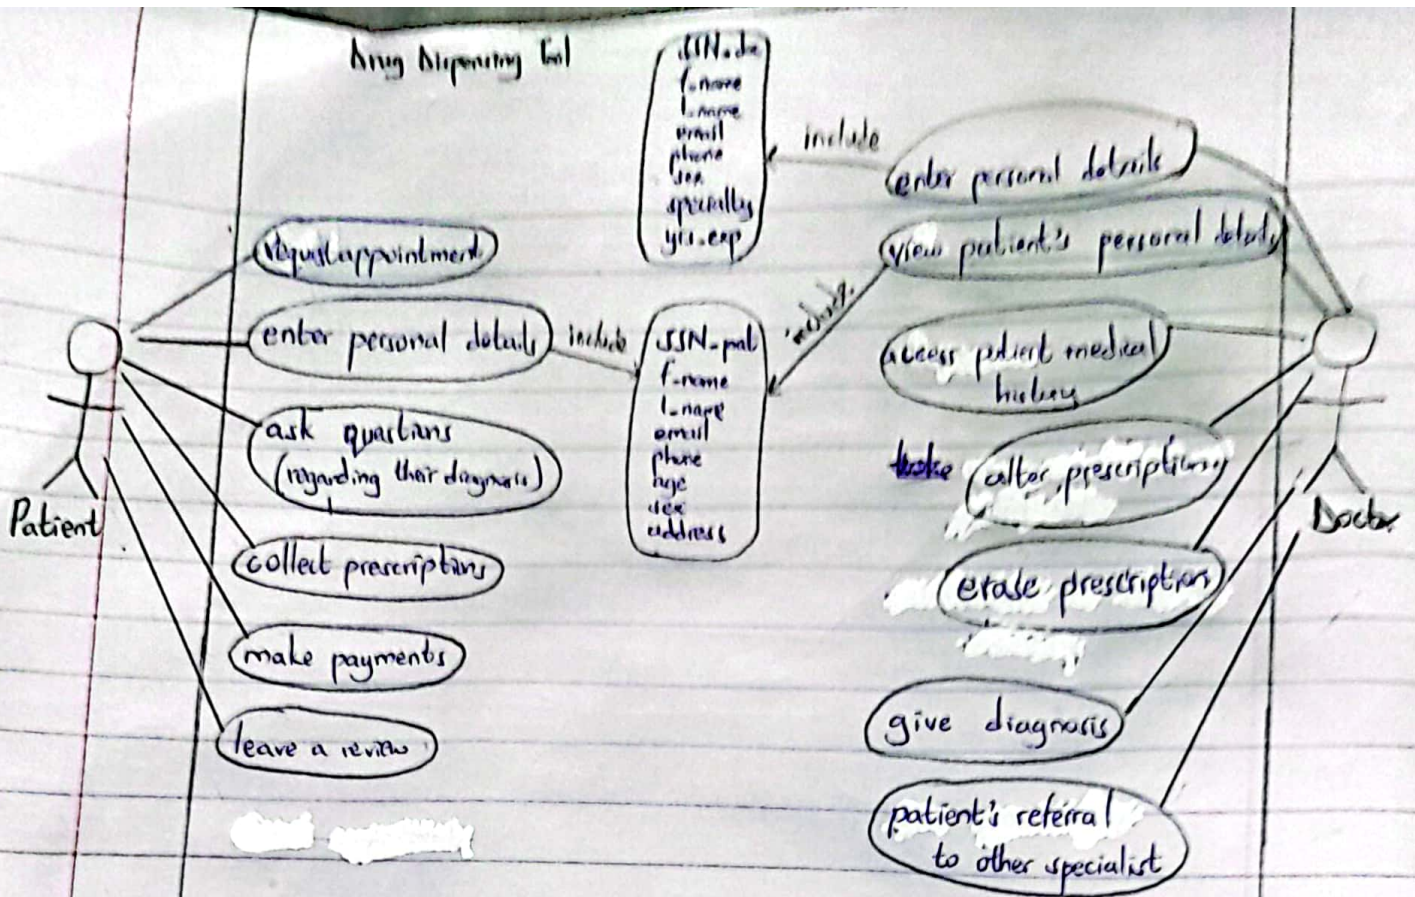 Drug Dispensing Tool
SSN_doc
f_name
l_name
email
phone
sex
specialty
yrs_exp
include
enter personal details
view patient's personal details
include
request appointment
enter personal details
include
SSN_pat
f_name
l_name
email
phone
age
sex
address
access patient medical
history
ask questions
(regarding their diagnosis)
alter prescriptions
Patient
Doctor
collect prescriptions
erase prescription
make payments
give diagnosis
leave a review
patient's referral
to other specialist